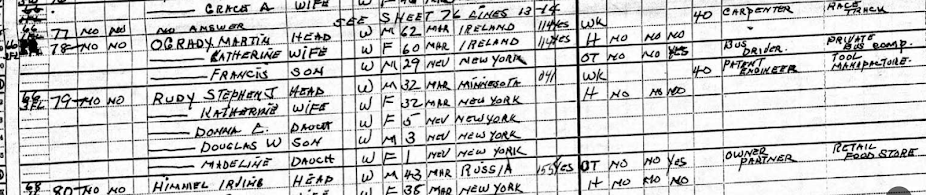 GRACE A WIFE
77 NO NO NO ANSWER SEE SHEET 76 LINES 13-14
78 NO NO OGRADY MARTIN HEAD W M 62 MAR IRELAND YES WK 40 CARPENTER RACE TRACK
KATHERINE WIFE W F 60 MAR IRELAND YES H NO NO NO
FRANCIS SON W M 29 NEV NEW YORK OT NO NO YES BUS DRIVER PRIVATE BUS COMP.
79 NO NO RUDY STEPHEN J HEAD W M 32 MAR MINNESOTA 041 WK 40 PATENT ENGINEER TOOL MANUFACTURE
KATHERINE WIFE W F 32 MAR NEW YORK H NO NO NO
DONNA L. DAUGH W F 5 NEV NEW YORK
DOUGLAS W SON W M 3 NEV NEW YORK
MADELINE DAUGH W F 1 NEV NEW YORK
80 NO NO HIMMEL IRVING HEAD W M 43 MAR RUSSIA 155 YES OT NO NO YES OWNER PARTNER RETAIL FOOD STORE
WIFE W F 38 MAR NEW YORK H NO NO NO